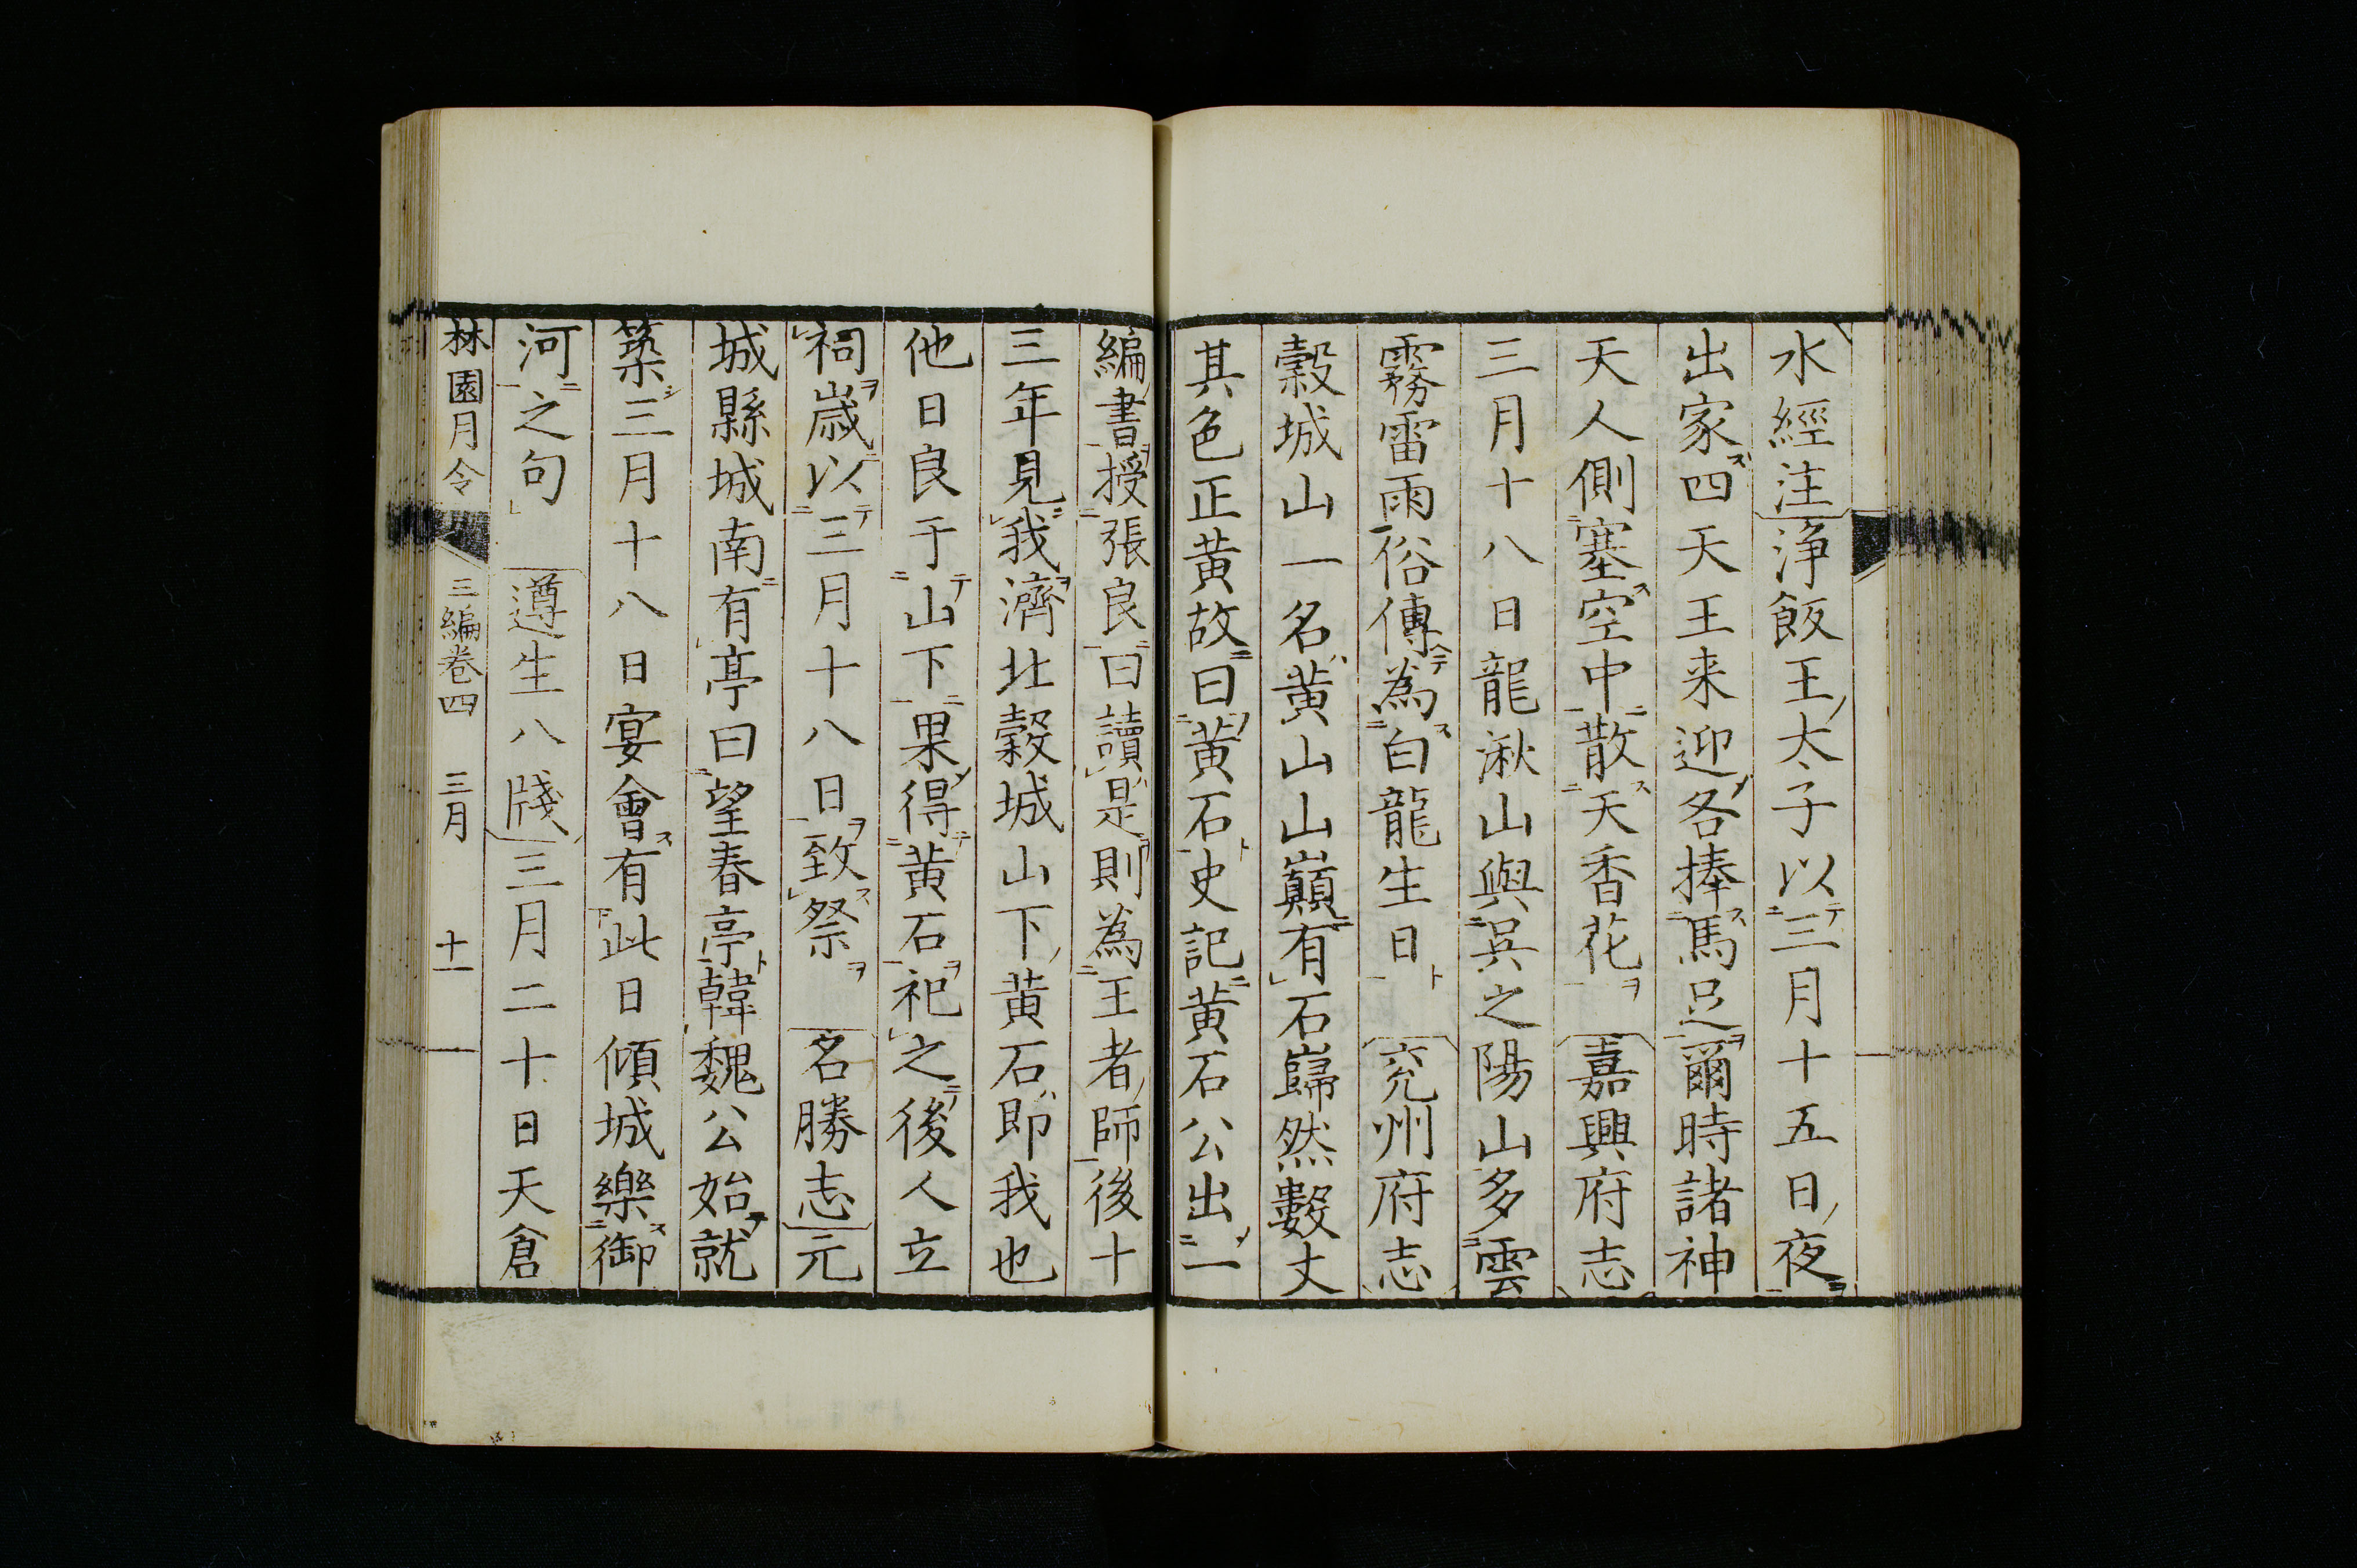 水經注淨飯王太子以三月十五日夜
出家四天王来迎各捧馬足爾時諸神
天人側塞空中散天香花　嘉興府志
三月十八日龍湫山與呉之陽山多雲
霧雷雨俗傳為白龍生日　兖州府志
穀城山一名黄山山巓有石巋然數丈
其色正黄故曰黄石史記黄石公出一
編書授張良曰讀是則為王者師後十
三年見我濟北穀城山下黄石即我也
他日良于山下果得黄石祀之後人立
祠歳以三月十八日致祭　名勝志元
城縣城南有亭曰望春亭韓魏公始就
築三月十八日宴會有此日傾城樂御
河之句　遵生八牋三月二十日天倉
林園月令　三編卷四　三月　十一